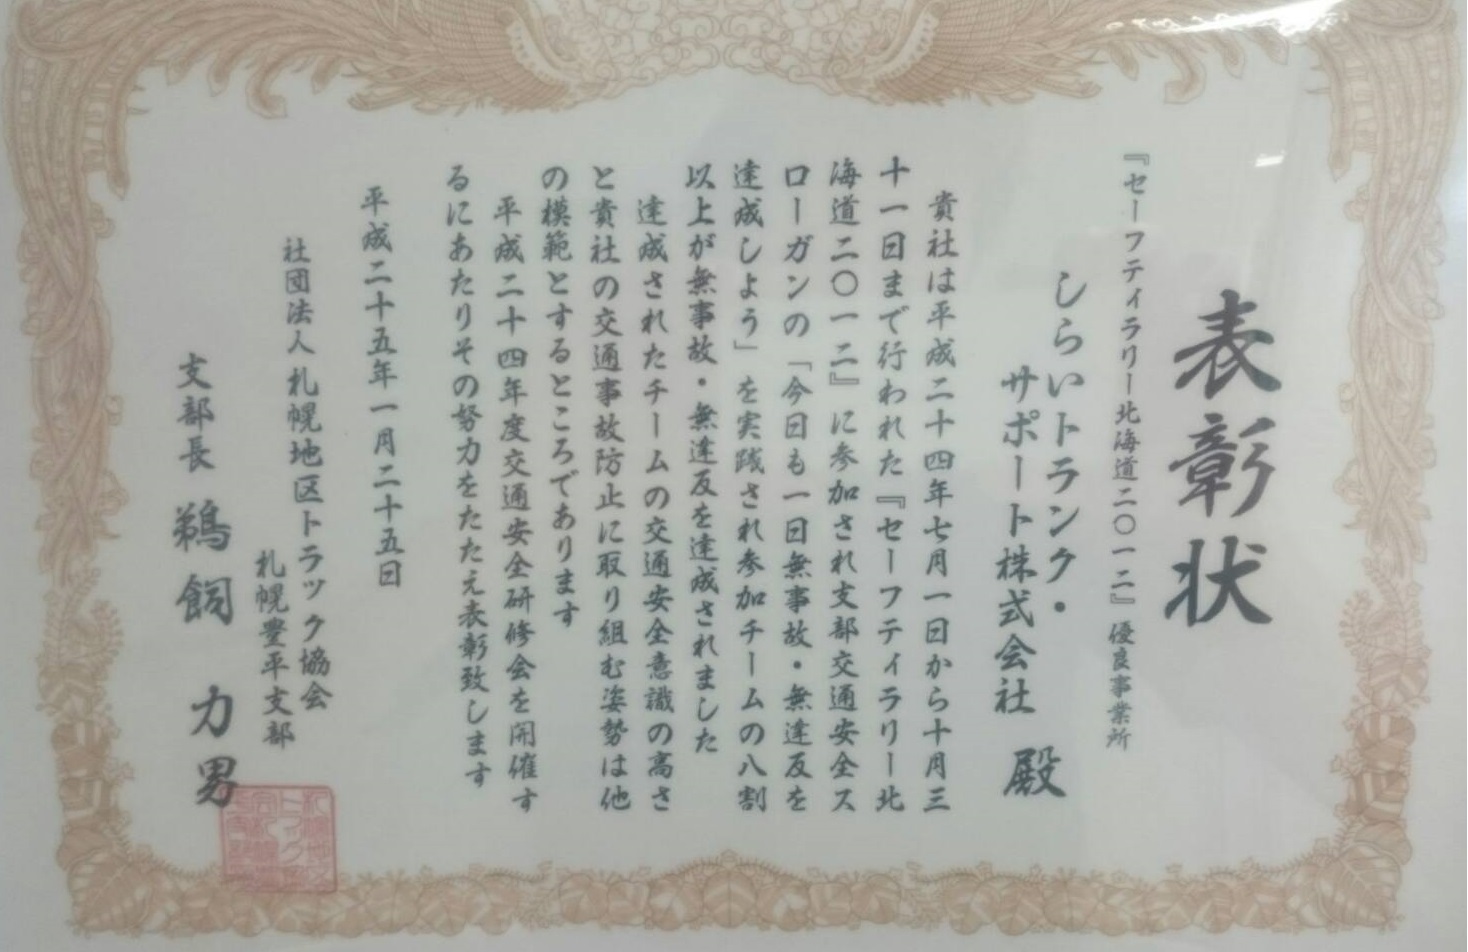 表彰状
『セーフティラリー北海道二〇一二』優良事業所
しらいトランク・
サポート株式会社 殿
貴社は平成二十四年七月一日から十月三
十一日まで行われた『セーフティラリー北
海道二〇一二』に参加され支部交通安全ス
ローガンの「今日も一日無事故・無違反を
達成しよう」を実践され参加チームの八割
以上が無事故・無違反を達成されました
達成されたチームの交通安全意識の高さ
と貴社の交通事故防止に取り組む姿勢は他
の模範とするところであります
平成二十四年度交通安全研修会を開催す
るにあたりその努力をたたえ表彰致します
平成二十五年一月二十五日
社団法人札幌地区トラック協会
札幌豊平支部
支部長 鵜飼力男